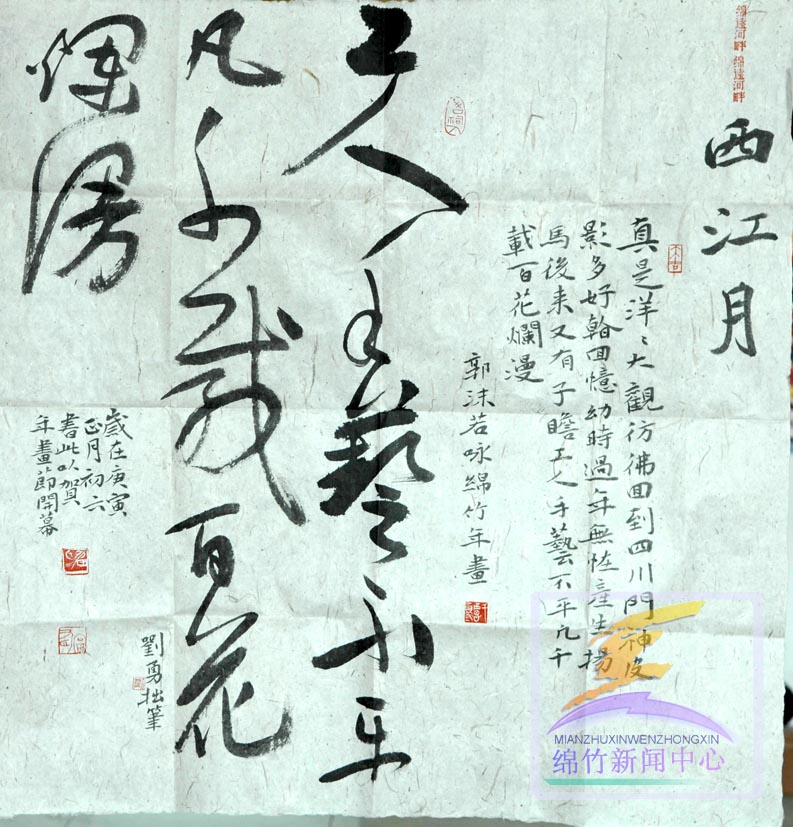 绵遠河畔 绵遠河畔
西江月
大吉
真是洋〻大觀彷彿回到四川門神皮
影多好翰回憶幼時過年無怪產生揚
馬後来又有子瞻工人手藝不平凡千
載百花爛漫
郭沫若咏綿竹年畫
工人手藝不平
凡千載百花
爛漫
歲在庚寅
正月初六
書此以賀
年畫節開幕
劉勇拙筆
MIANZHUXINWENZHONGXIN
绵竹新闻中心